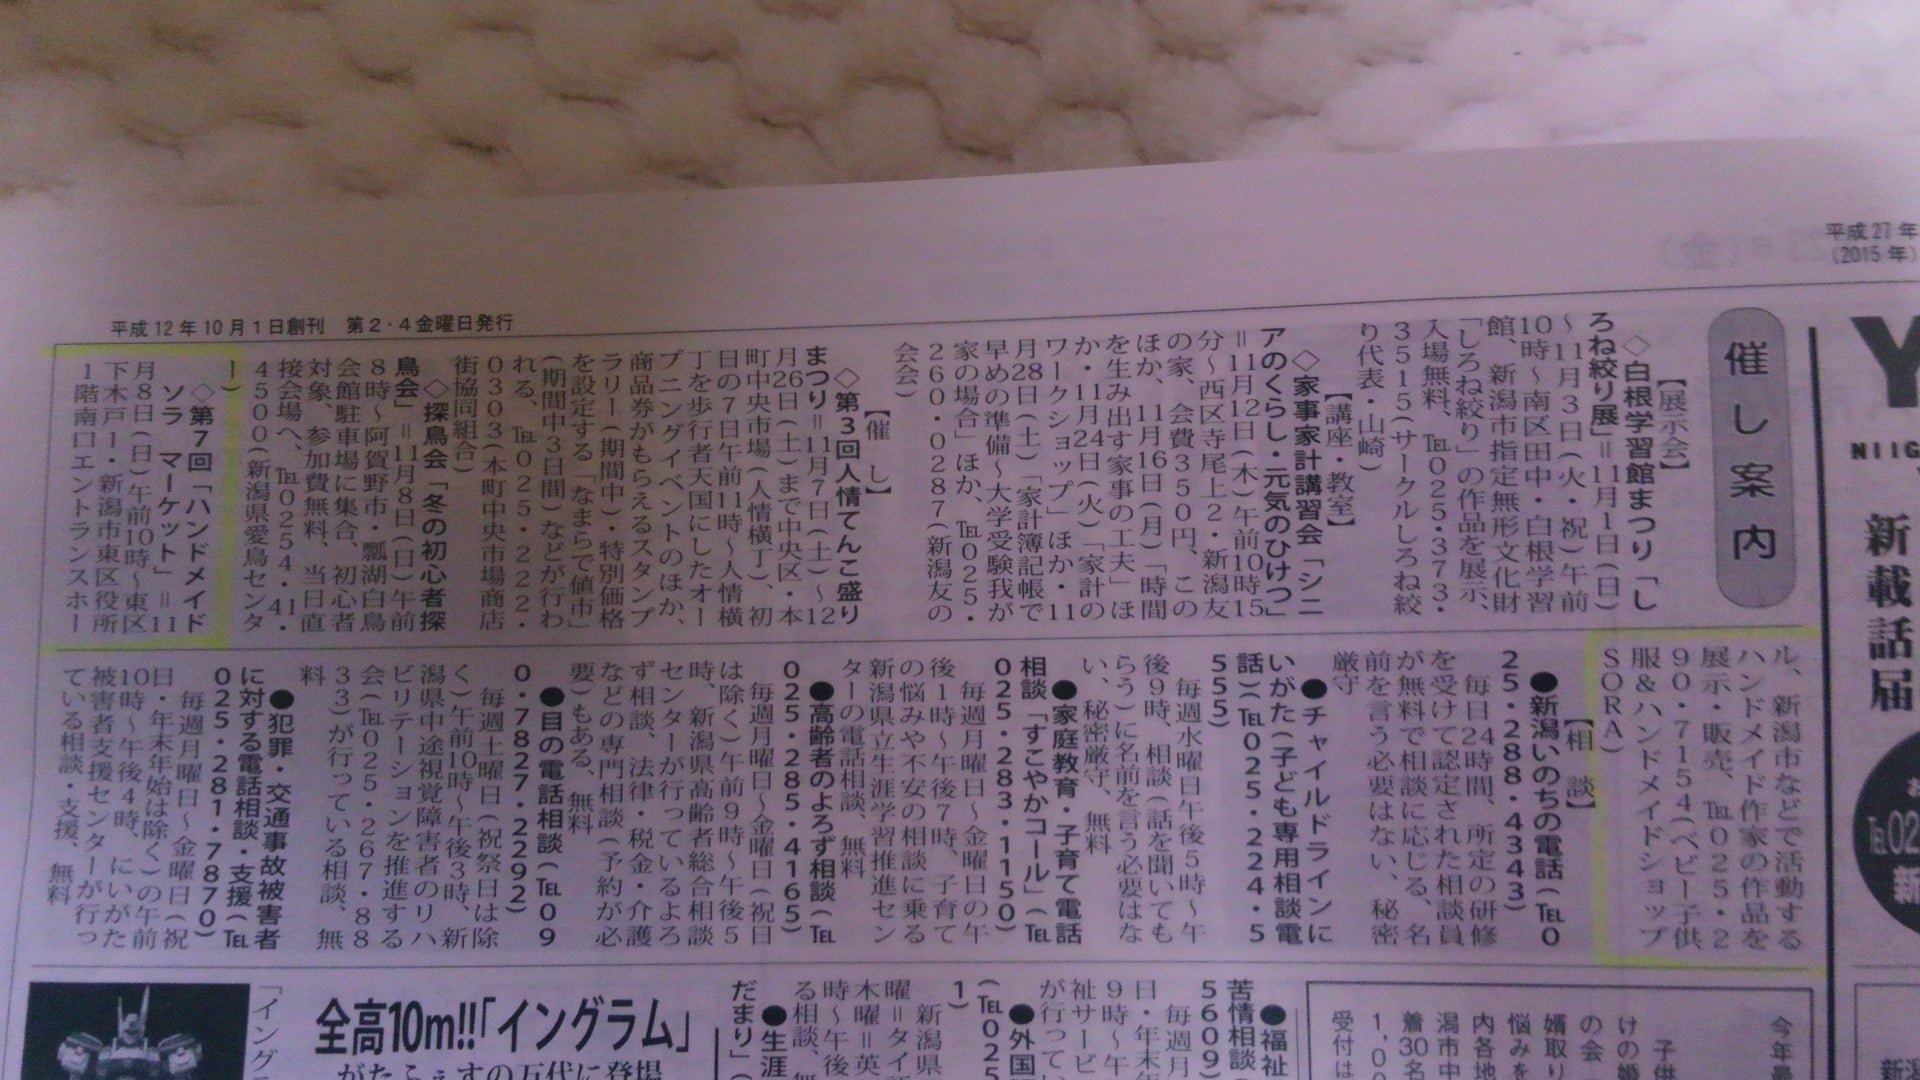 平成27年
(2015年)
平成12年10月1日創刊 第2・4金曜日発行
催し案内
【展示会】
◇白根学習館まつり「し
ろね絞り展」=11月1日(日)
〜11月3日(火・祝)午前
10時〜南区田中・白根学習
館、新潟市指定無形文化財
「しろね絞り」の作品を展示、
入場無料、℡025・373・
3515(サークルしろね絞
り代表・山崎)
【講座・教室】
◇家事家計講習会「シニ
アのくらし・元気のひけつ」
=11月12日(木)午前10時15
分〜西区寺尾上2・新潟友
の家、会費350円、この
ほか、11月16日(月)「時間
を生み出す家事の工夫」ほ
か・11月24日(火)「家計の
ワークショップ」ほか・11
月28日(土)「家計簿記帳で
早めの準備〜大学受験我が
家の場合」ほか、℡025・
260・0287(新潟友の
会会)
【催し】
◇第3回人情てんこ盛り
まつり=11月7日(土)〜12
月26日(土)まで中央区・本
町中央市場(人情横丁)、初
日の7日午前11時〜人情横
丁を歩行者天国にしたオー
プニングイベントのほか、
商品券がもらえるスタンプ
ラリー(期間中)・特別価格
を設定する「なまらで値市」
(期間中3日間)などが行わ
れる、℡025・222・
0303(本町中央市場商店
街協同組合)
◇探鳥会「冬の初心者探
鳥会」=11月8日(日)午前
8時〜阿賀野市・瓢湖白鳥
会館駐車場に集合、初心者
対象、参加費無料、当日直
接会場へ、℡0254・41・
4500(新潟県愛鳥センタ
ー)
◇第7回「ハンドメイド
ソラ マーケット」=11
月8日(日)午前10時〜東区
下木戸1・新潟市東区役所
1階南口エントランスホー
ル、新潟市などで活動する
ハンドメイド作家の作品を
展示・販売、℡025・2
90・7154(ベビー子供
服&ハンドメイドショップ
SORA)
【相談】
●新潟いのちの電話(℡0
25・288・4343)
毎日24時間、所定の研修
を受けて認定された相談員
が無料で相談に応じる、名
前を言う必要はない、秘密
厳守
●チャイルドラインに
いがた(子ども専用相談電
話)(℡025・224・5
555)
毎週水曜日午後5時〜午
後9時、相談(話を聞いても
らう)に名前を言う必要はな
い、秘密厳守、無料
●家庭教育・子育て電話
相談「すこやかコール」(℡
025・283・1150)
毎週月曜日〜金曜日の午
後1時〜午後7時、子育て
の悩みや不安の相談に乗る
新潟県立生涯学習推進セン
ターの電話相談、無料
●高齢者のよろず相談(℡
025・285・4165)
毎週月曜日〜金曜日(祝日
は除く)午前9時〜午後5
時、新潟県高齢者総合相談
センターが行っているよろ
ず相談、法律・税金・介護
などの専門相談(予約が必
要)もある、無料
●目の電話相談(℡09
0・7827・2292)
毎週土曜日(祝祭日は除
く)午前10時〜午後3時、新
潟県中途視覚障害者のリハ
ビリテーションを推進する
会(℡025・267・88
33)が行っている相談、無
料
●犯罪・交通事故被害者
に対する電話相談・支援(℡
025・281・7870)
毎週月曜日〜金曜日(祝
日・年末年始は除く)の午前
10時〜午後4時、にいがた
被害者支援センターが行っ
ている相談・支援、無料
新載話届
●福祉
苦情相談(
5609)
毎週月
日・年末年
9時〜午
祉サービ
が行ってい
●外国
(℡025
1)
新潟県
曜=タイ語
木曜=英
時〜午後
る相談、無
●生涯
だまり」(
全高10m!!「イングラム」
がたふぇすの万代に登場
「イング